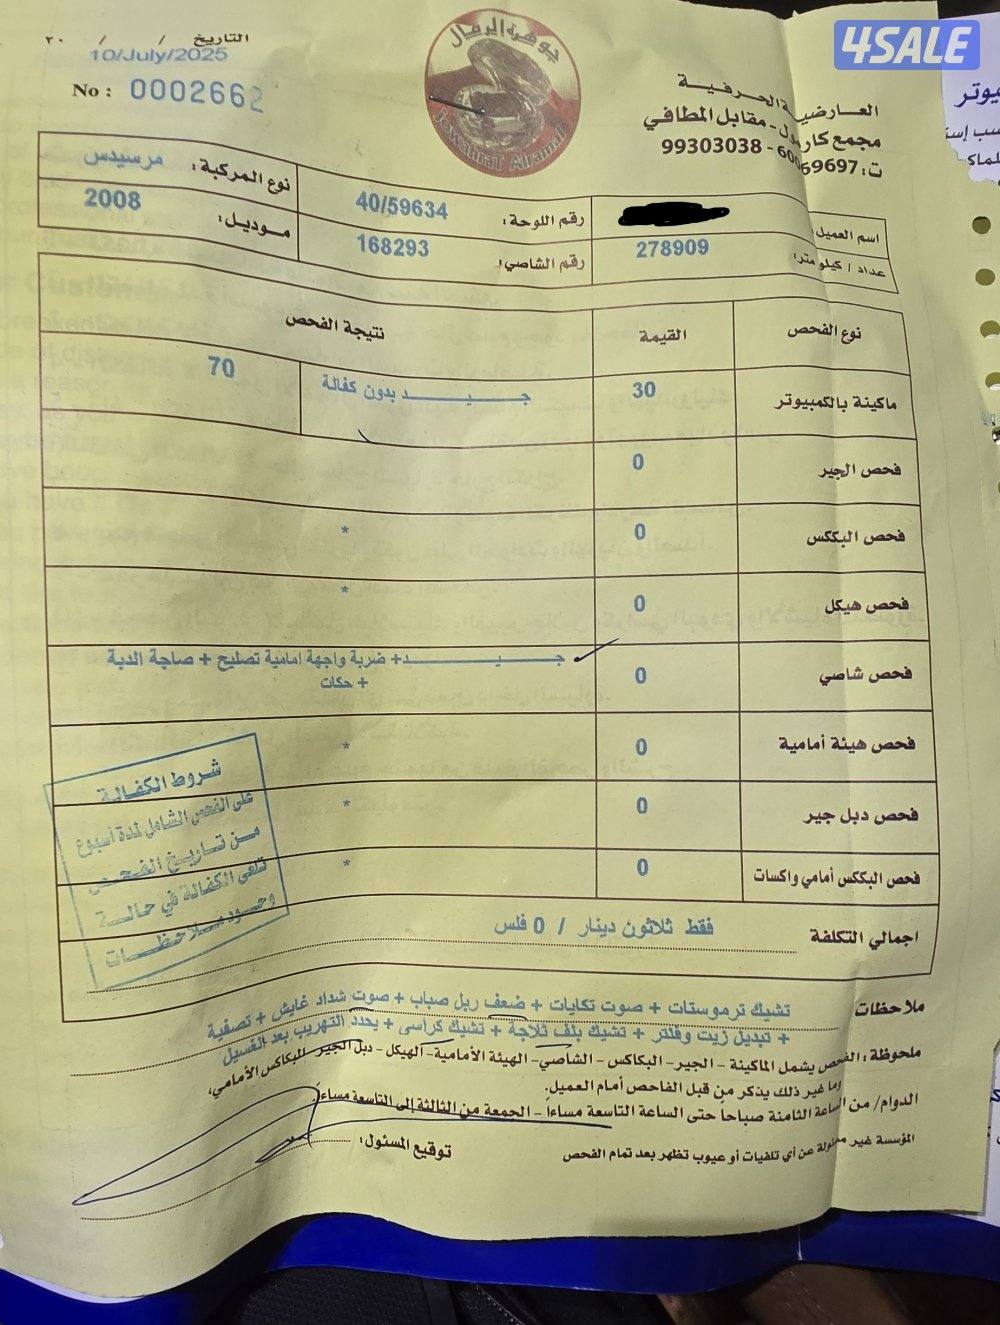 4SALE
التاريخ / / ٢٠
10/July/2025
No : 0002662
جوهرة الرمال
JawahraT Alramal
العارضية الحرفية
مجمع كارمول - مقابل المطافي
ت: 60069697 - 99303038
اسم العميل
رقم اللوحة: 40/59634
نوع المركبة: مرسيدس
عداد / كيلو متر: 278909
رقم الشاصي: 168293
موديل: 2008
نوع الفحص القيمة نتيجة الفحص
ماكينة بالكمبيوتر 30 جـــيـــد بدون كفالة 70
فحص الجير 0
فحص البككس 0 *
فحص هيكل 0 *
فحص شاصي 0 جـــيـــد+ ضربة واجهة امامية تصليح + صاجة الدبة
+ حكات
فحص هيئة أمامية 0 *
فحص دبل جير 0 *
فحص البككس أمامي واكسات 0 *
اجمالي التكلفة فقط ثلاثون دينار / 0 فلس
شروط الكفالة
على الفحص الشامل لمدة أسبوع
من تاريخ الفحص
تلغى الكفالة في حالة
وجود ملاحظات
ملاحظات تشيك ترموستات + صوت تكايات + ضعف ربل صباب + صوت شداد غايش + تصفية
+ تبديل زيت وفلتر + تشيك بلف ثلاجة + تشيك كراسى + يحدد التهريب بعد الغسيل
ملحوظة: الفحص يشمل الماكينة - الجير - البكاكس - الشاصي - الهيئة الأمامية - الهيكل - دبل الجير - البكاكس الأمامي،
وما غير ذلك يذكر من قبل الفاحص أمام العميل.
الدوام/ من الساعة الثامنة صباحاً حتى الساعة التاسعة مساءاً - الجمعة من الثالثة إلى التاسعة مساءاً.
المؤسسة غير مسئولة عن أي تلفيات أو عيوب تظهر بعد تمام الفحص
توقيع المسئول: